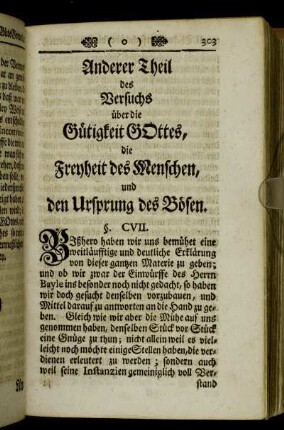 ( o ) 303
Anderer Theil
des
Versuchs
über die
Gütigkeit GOttes,
die
Freyheit des Menschen,
und
den Ursprung des Bösen.
§. CVII.
BIßhero haben wir uns bemühet eine
weitläufftige und deutliche Erklärung
von dieser gantzen Materie zu geben;
und ob wir zwar der Einwürffe des Herrn
Bayle ins besonder noch nicht gedacht, so haben
wir doch gesucht denselben vorzubauen, und
Mittel darauf zu antworten an die Hand zu ge-
ben. Gleich wie wir aber die Mühe auf uns
genommen haben, denselben Stück vor Stück
eine Gnüge zu thun; nicht allein weil es viel-
leicht noch möchte einige Stellen haben, die ver-
dienen erleutert zu werden; sondern auch
weil seine Instanzien gemeiniglich voll Ver-
stand